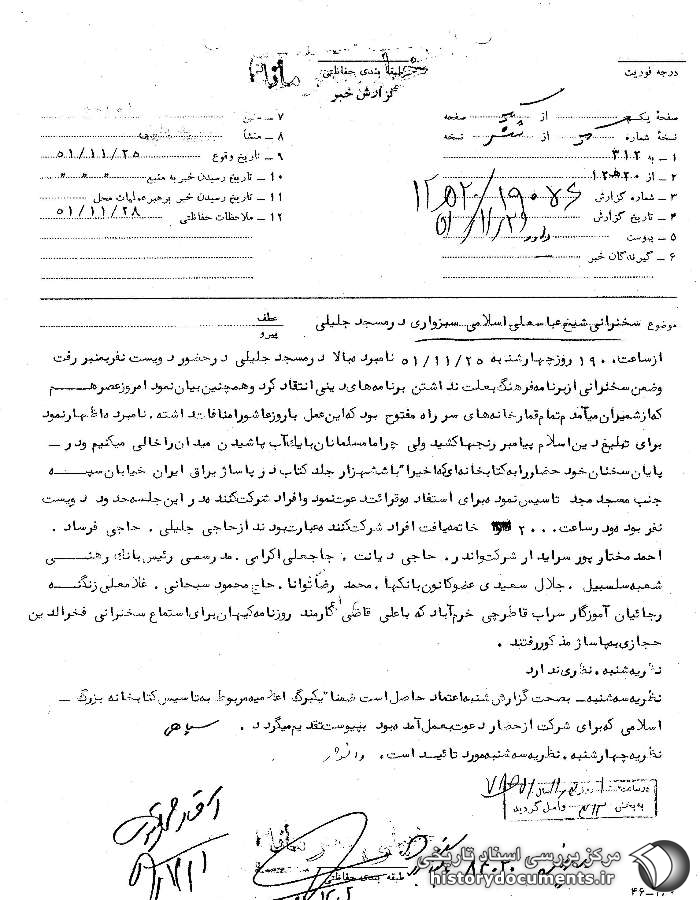 درجه فوریت
طبقه بندی حفاظتی
گزارش خبر
صفحه یک از صفحه
نسخه شماره از نسخه
۱ – به ۳۱۲
۲ – از ۲۰ ه ۱۲
۳ – شماره گزارش ۱۹۰۷۶ / ۲۰ ه ۱۲
۴ – تاریخ گزارش ۵۱/۱۱/۲۹
۵ – پیوست دارد
۶ – گیرندگان خبر
۷ – منبع
۸ – منشأ
۹ – تاریخ وقوع ۵۱/۱۱/۲۵
۱۰ – تاریخ رسیدن خبر به منبع
۱۱ – تاریخ رسیدن خبر برهبر عملیات محل
۱۲ – ملاحظات حفاظتی ۵۱/۱۱/۲۸
موضوع سخنرانی شیخ عباسعلی اسلامی سبزواری در مسجد جلیلی
عطف
پیرو
از ساعت ۱۹۰۰ روز چهارشنبه ۵۱/۱۱/۲۵ نامبرده بالا در مسجد جلیلی در حضور دویست نفر بمنبر رفت
و ضمن سخنرانی از برنامه فرهنگ بعلت نداشتن برنامه های دینی انتقاد کرد و همچنین بیان نمود امروز عصر هم
که از شمیران میآمدم تمام قمارخانه های سر راه مفتوح بود که این عمل با روز عاشورا منافات داشته . نامبرده اظهار نمود
برای تبلیغ دین اسلام پیامبر رنجها کشید ولی چرا ما مسلمانان با یک آب پاشیدن میدان را خالی میکنیم و در –
پایان سخنان خود حضار را به کتابخانه ای که اخیرا با ششهزار جلد کتاب در پاساژ براق ایران خیابان سپه
جنب مسجد مجد تاسیس نموده برای استفاده و قرائت دعوت نمود و افراد شرکت کننده در این جلسه حدود دویست
نفر بوده و در ساعت ۲۰۰۰ خاتمه یافت افراد شرکت کننده عبارت بودند از حاجی جلیلی . حاجی فرساد .
احمد مختارپور سرایدار شرکت واندر . حاجی دیانت . حاجعلی اکرامی . مدرسی رئیس بانک رهنی
شعبه سلسبیل . جلال سعیدی عضو کانون بانکها . محمد رضا توانا . حاج محمود سبحانی . غلامعلی زنگنه
رجائیان آموزگار سراب قاطرچی خرم آباد که با علی قاضی کارمند روزنامه کیهان برای استماع سخنرانی فخرالدین
حجازی به پاساژ مذکور رفتند .
نظریه شنبه . نظری ندارد
نظریه سه شنبه – بصحت گزارش شنبه اعتماد حاصل است ضمنا یکبرگ اعلامیه مربوط به تاسیس کتابخانه بزرگ –
اسلامی که برای شرکت از حضار دعوت بعمل آمده بود بپیوست تقدیم میگردد . سپاهی
نظریه چهارشنبه . نظریه سه شنبه مورد تائید است .
در ساعت روز
به بخش ۳۱۲ واصل گردید
طبقه بندی حفاظتی
مرکز بررسی اسناد تاریخی
historydocuments.ir